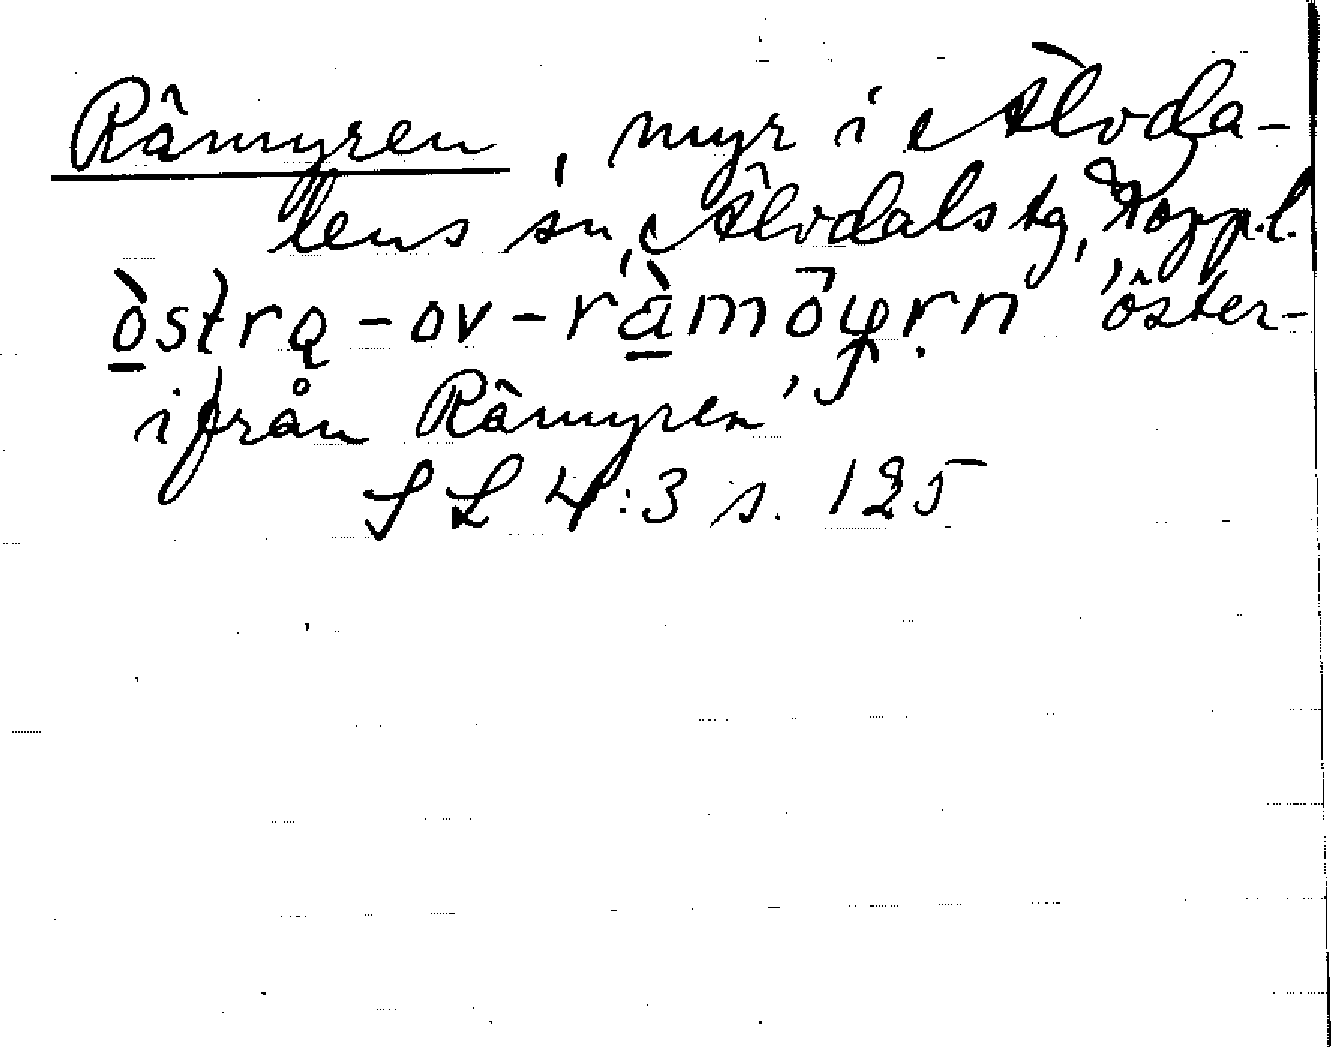 Råmyren, myr i Älvda-
lens sn, Älvdals tg, Kopp.l.
òstrą-ov-ràmȍyrn 'öster-
ifrån Råmyren'
SL 4:3 s. 125